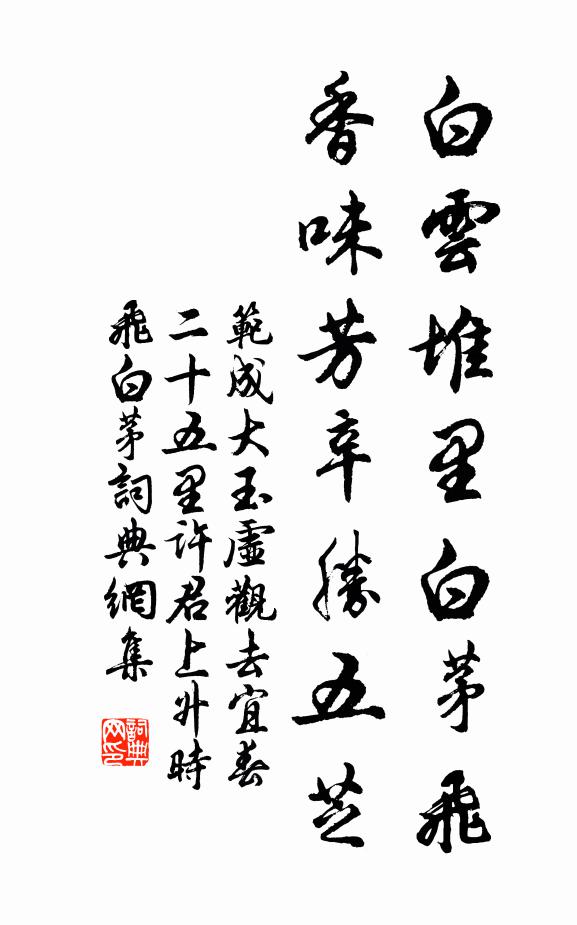 白雲堆里白茅飛
香味芳辛勝五芝
範成大玉虛觀去宜春
二十五里許君上升時
飛白茅詞典網集
詞典
网印